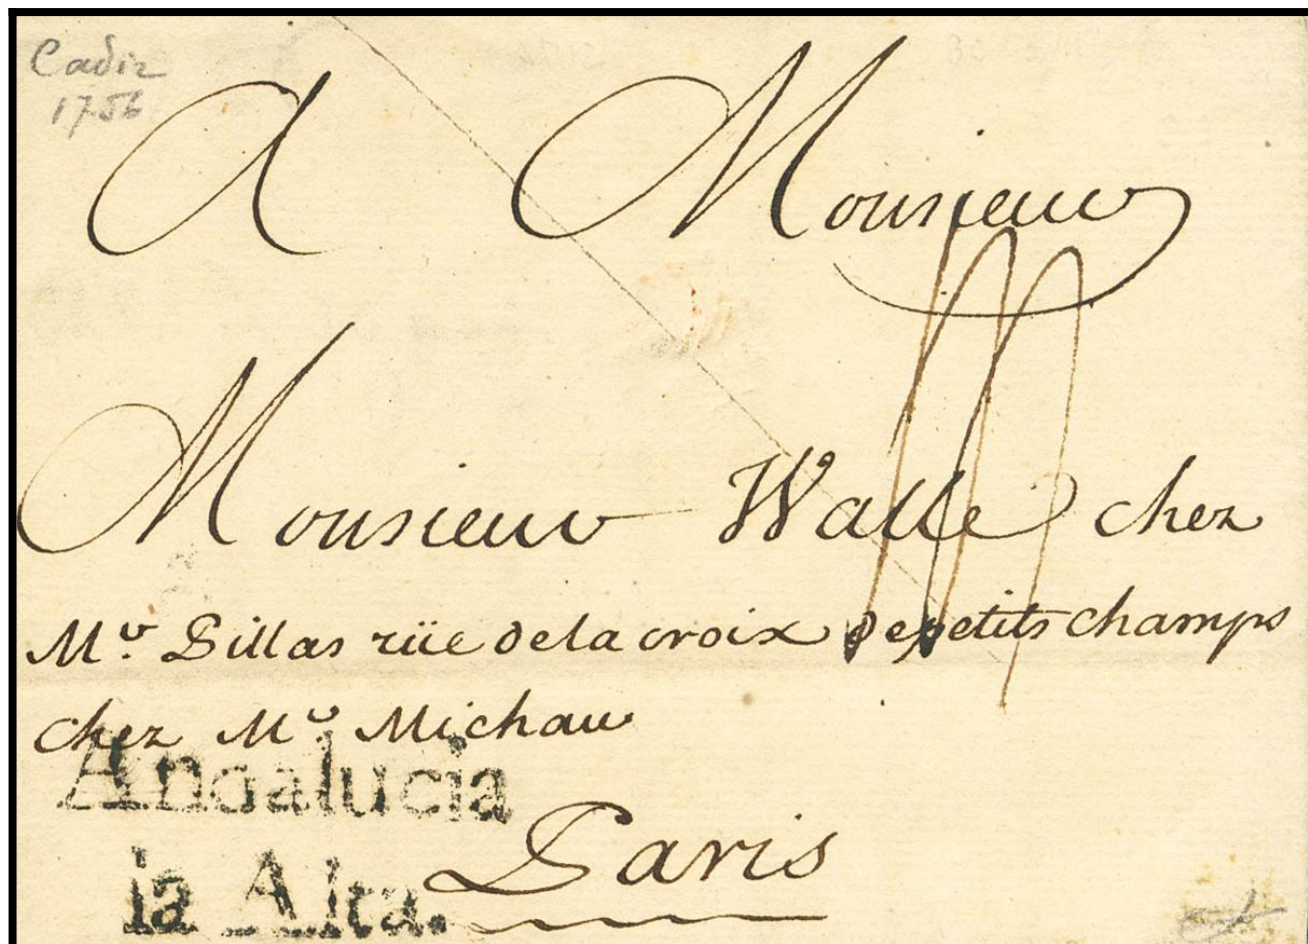 Cadiz
1756
A Monsieur
Monsieur Walle chez
Mr. Pillas rüe de la croix de petits champs
chez Mr. Michau
Andalucia
la Alta.
Paris